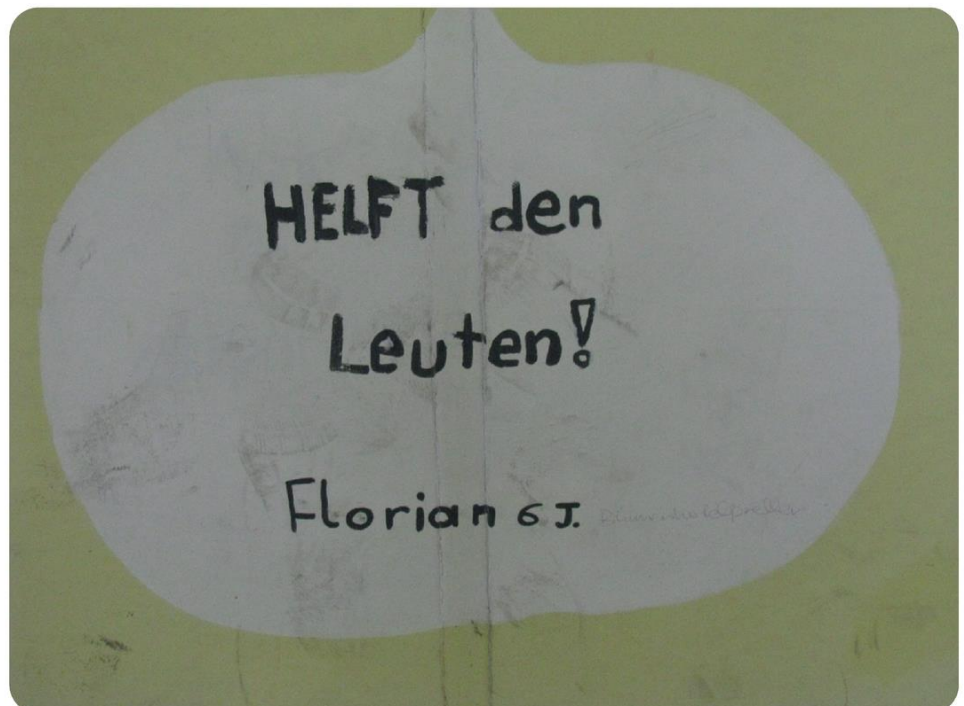 HELFT den
Leuten!
Florian 6 J.